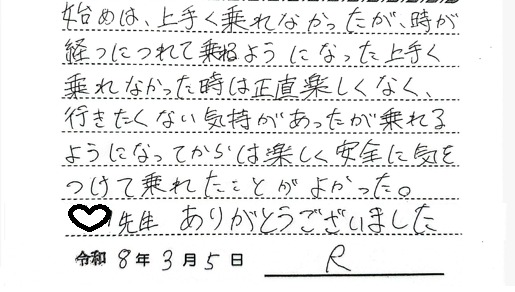 始めは、上手く乗れなかったが、時が
経つにつれて乗れるようになった上手く
乗れなかった時は正直楽しくなく、
行きたくない気持があったが乗れる
ようになってからは楽しく安全に気を
つけて乗れたことがよかった。
先生 ありがとうございました
令和 8 年 3 月 5 日 R